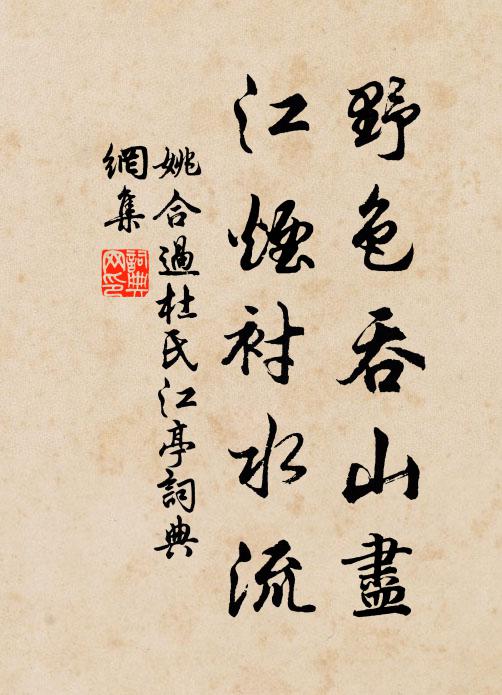 野色吞山盡
江煙襯水流
姚合過杜氏江亭詞典
網集
詞典
网印